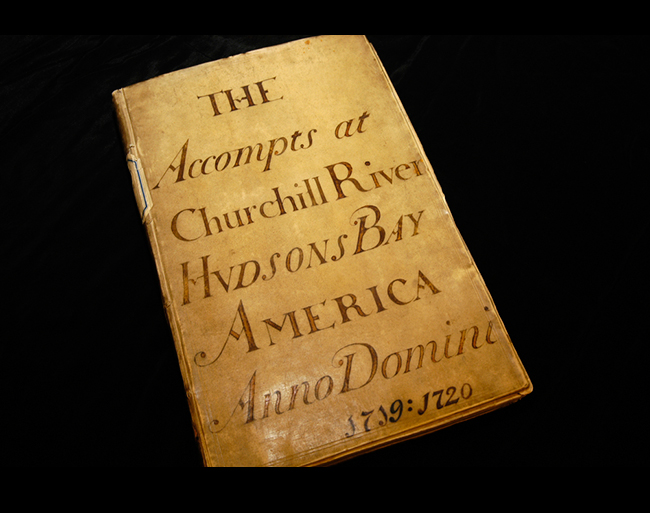 THE
Accompts at
Churchill River
HVDSONS BAY
AMERICA
Anno Domini
1719:1720